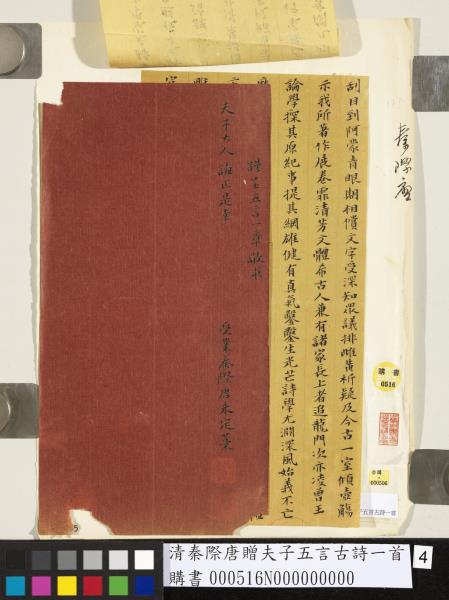 刮目到阿蒙青眼期相償文字受深知眾議排雌黃析疑及今古一室傾壺觴
示我所著作展卷霏清芳文體希古人兼有諸家長上者追龍門次亦凌曾王
論學探其原紀事提其綱雄健有真氣鑿鑿生光芒詩學尤淵深風始義不亡
謹呈五言一章敬求
夫子大人誨正是幸
受業秦際唐未定藁
秦際唐
購書
0516
購書
000506
子五言古詩一首
5
清秦際唐贈夫子五言古詩一首
購書 000516N000000000
4